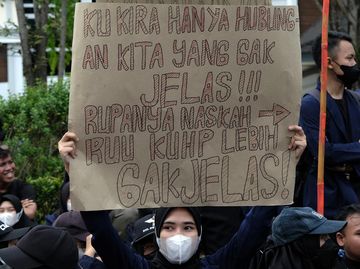 KU KIRA HANYA HUBUNG-
AN KITA YANG GAK
JELAS!!!
RUPANYA NASKAH →
RUU KUHP LEBIH
GAKJELAS!